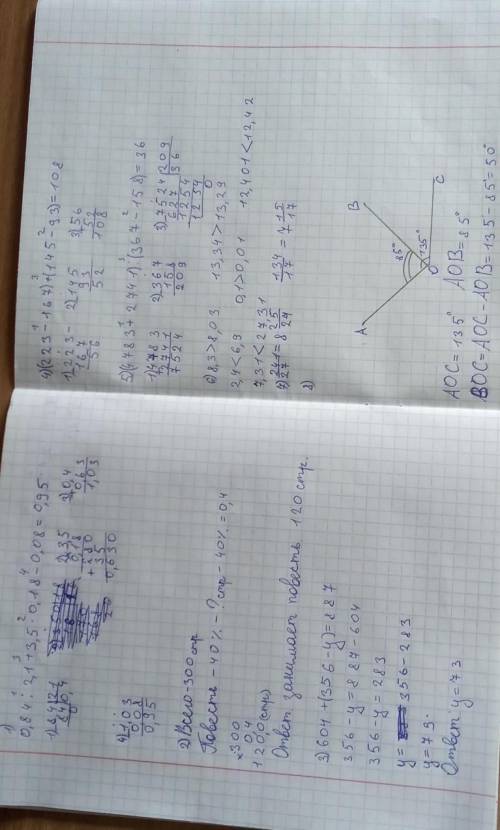 1)
0,84 : 2,1 + 3,5 · 0,18 - 0,08 = 0,95
3) 0,4
0,63
1,03
4) 1,03
0,08
0,95
2) Всего - 300 стр
Повесть - 40% - ? стр - 40% = 0,4
× 300
0,4
120,0 (стр)
Ответ занимает повесть 120 стр.
3) 604 + (356 - y) = 887
356 - y = 887 - 604
356 - y = 283
y = 356 - 283
y = 73.
Ответ: y = 73
4) (223 - 167) + (145 - 93) = 108
1) 223
167
56
2) 145
93
52
3) 56
52
108
5) (4783 + 2741) : (367 - 158) = 36
1) 4783
2741
7524
2) 367
158
209
3) 7524 | 209
627 | 36
1254
1254
0
6) 8,3 > 8,03 13,34 > 13,29
2,4 < 6,9 0,1 > 0,01 12,401 < 12,42
7,31 < 27,31
8)
A
B
85°
135°
O
C
AOC = 135° AOB = 85°
BOC = AOC - AOB = 135 - 85 = 50°